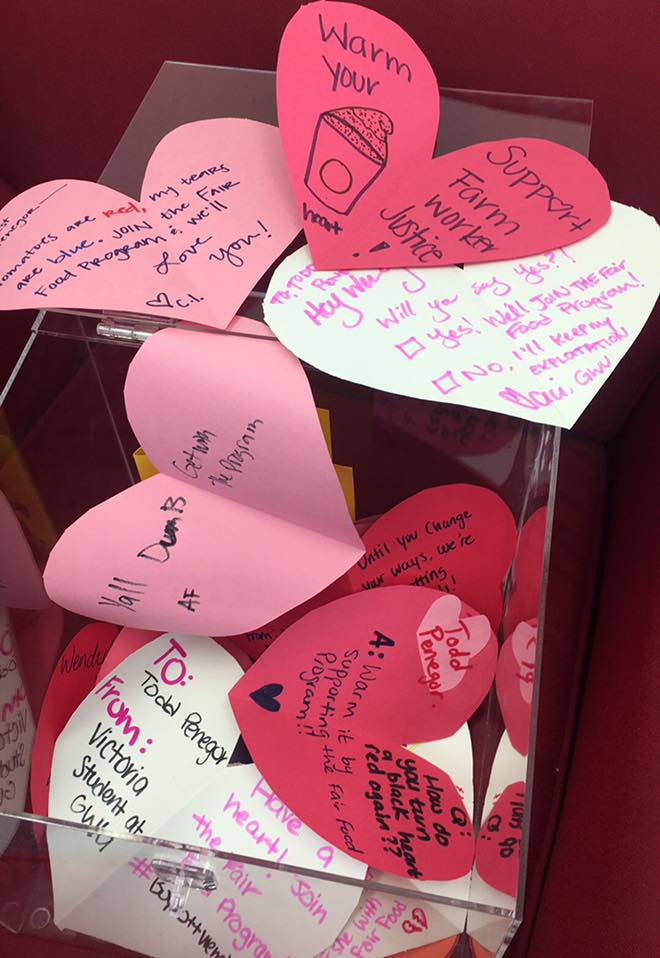 Warm
your
heart
!
Support
Farm
Worker
Justice
tomatoes are red, my tears
are blue. JOIN the FAIR
FOOD PROGRAM & we'll
Love you!
♡ C.I.
Will ya say yes?!
☐ yes! We'll JOIN THE Fair
Food Program!
☐ No, I'll keep my
EXPLOITATION
GWU
Getting
The Program
Yall Dumb
AF
Until you Change
your ways, we're
Wendy
TO:
Todd Penegor
From:
Victoria
Student at
GWU
Todd
Penegor
A: Warm it by
supporting the Fair Food
Program!!
Q:
How do
you turn
a black heart
red again??
Have a
heart! Join
the Fair
Food Program
with
Fair Food